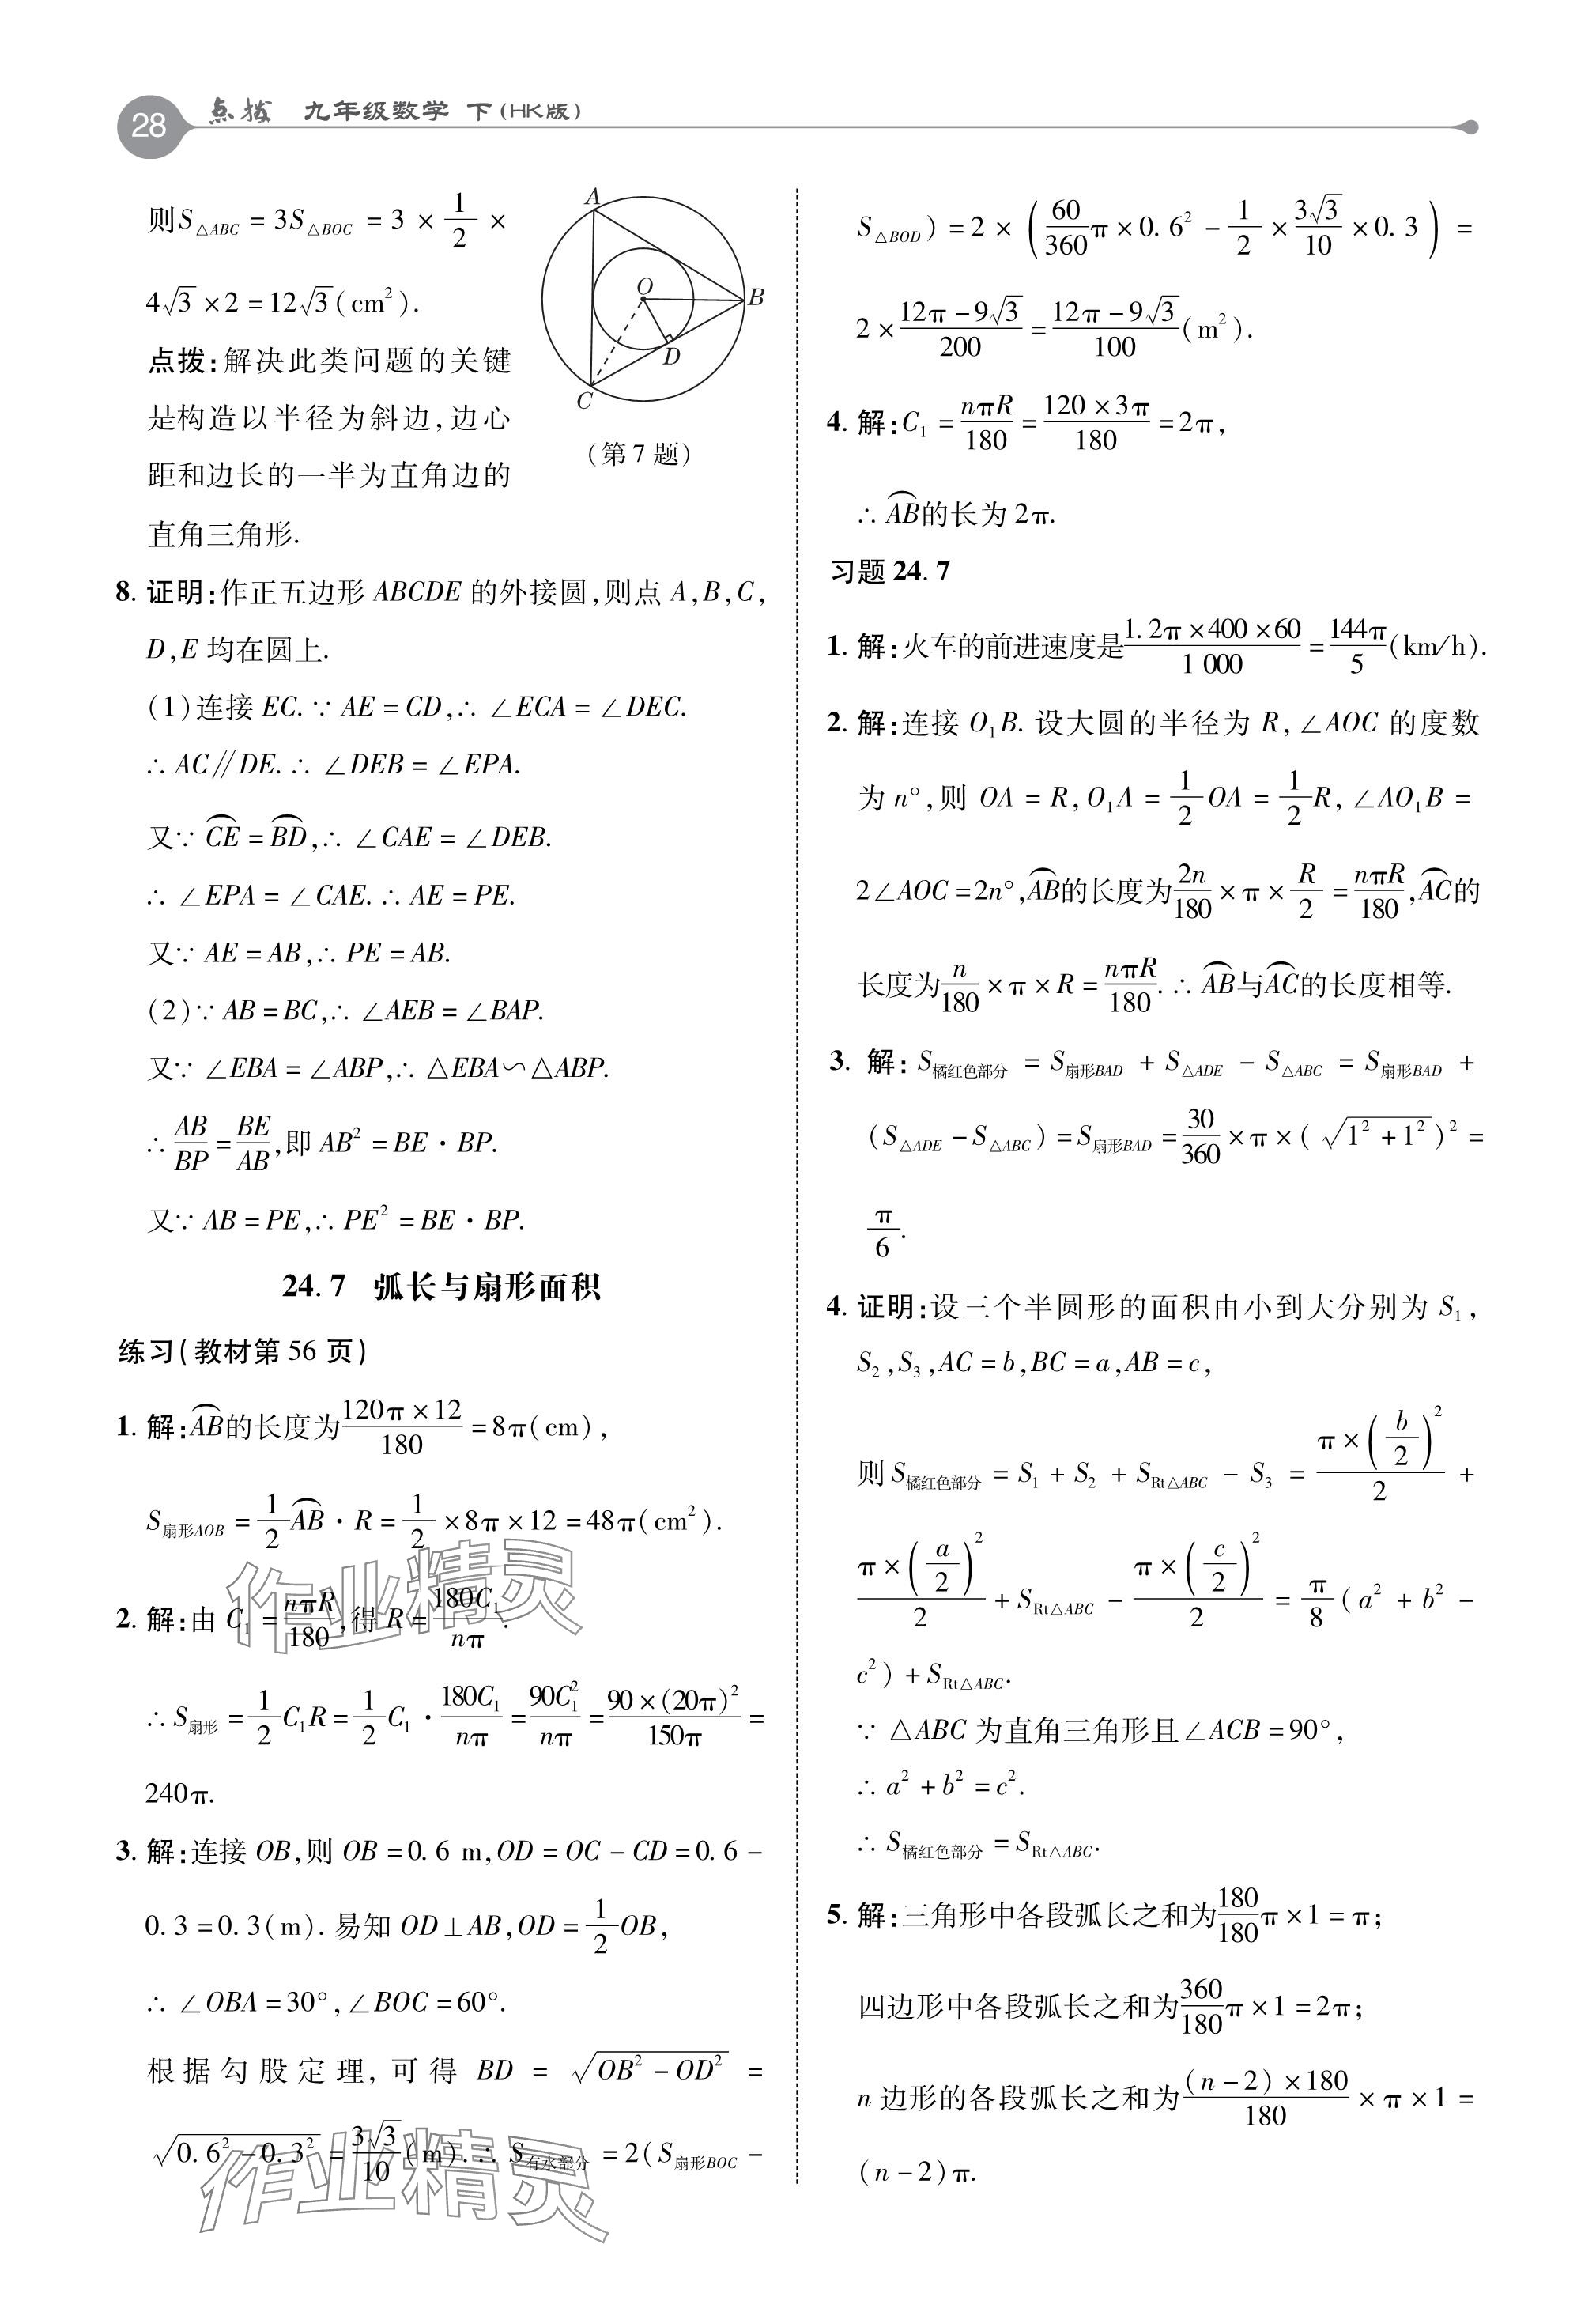 28 点拨 九年级数学 下(HK版)
则S△ABC = 3S△BOC = 3 × 1/2 ×
4√3 × 2 = 12√3(cm²).
点拨:解决此类问题的关键
是构造以半径为斜边,边心
距和边长的一半为直角边的
直角三角形.
A
O
B
D
C
(第7题)
8. 证明:作正五边形 ABCDE 的外接圆,则点 A,B,C,
D,E 均在圆上.
(1)连接 EC.∵ AE = CD,∴ ∠ECA = ∠DEC.
∴ AC∥DE.∴ ∠DEB = ∠EPA.
又∵ ⌒CE = ⌒BD,∴ ∠CAE = ∠DEB.
∴ ∠EPA = ∠CAE.∴ AE = PE.
又∵ AE = AB,∴ PE = AB.
(2)∵ AB = BC,∴ ∠AEB = ∠BAP.
又∵ ∠EBA = ∠ABP,∴ △EBA∽△ABP.
∴ AB/BP = BE/AB,即 AB² = BE · BP.
又∵ AB = PE,∴ PE² = BE · BP.
24.7 弧长与扇形面积
练习(教材第56页)
1. 解:⌒AB的长度为 120π×12/180 = 8π(cm),
S扇形AOB = 1/2 ⌒AB · R = 1/2 × 8π × 12 = 48π(cm²).
2. 解:由 C₁ = nπR/180,得 R = 180C₁/nπ.
∴ S扇形 = 1/2 C₁R = 1/2 C₁ · 180C₁/nπ = 90C₁²/nπ = 90×(20π)²/150π =
240π.
3. 解:连接 OB,则 OB = 0.6 m,OD = OC - CD = 0.6 -
0.3 = 0.3(m). 易知 OD⊥AB,OD = 1/2 OB,
∴ ∠OBA = 30°,∠BOC = 60°.
根据勾股定理,可得 BD = √(OB² - OD²) =
√(0.6² - 0.3²) = 3√3/10 (m).∴ S有水部分 = 2(S扇形BOC -
S△BOD) = 2 × (60/360 π × 0.6² - 1/2 × 3√3/10 × 0.3) =
2 × (12π - 9√3)/200 = (12π - 9√3)/100 (m²).
4. 解:C₁ = nπR/180 = 120×3π/180 = 2π,
∴ ⌒AB的长为 2π.
习题 24.7
1. 解:火车的前进速度是 1.2π×400×60/1 000 = 144π/5 (km/h).
2. 解:连接 O₁B. 设大圆的半径为 R,∠AOC 的度数
为 n°,则 OA = R,O₁A = 1/2 OA = 1/2 R,∠AO₁B =
2∠AOC = 2n°,⌒AB的长度为 2n/180 × π × R/2 = nπR/180,⌒AC的
长度为 n/180 × π × R = nπR/180.∴ ⌒AB与⌒AC的长度相等.
3. 解:S橘红色部分 = S扇形BAD + S△ADE - S△ABC = S扇形BAD +
(S△ADE - S△ABC) = S扇形BAD = 30/360 × π × (√(1² + 1²))² =
π/6.
4. 证明:设三个半圆形的面积由小到大分别为 S₁,
S₂,S₃,AC = b,BC = a,AB = c,
则 S橘红色部分 = S₁ + S₂ + SRt△ABC - S₃ = π×(b/2)²/2 +
π×(a/2)²/2 + SRt△ABC - π×(c/2)²/2 = π/8 (a² + b² -
c²) + SRt△ABC.
∵ △ABC 为直角三角形且∠ACB = 90°,
∴ a² + b² = c².
∴ S橘红色部分 = SRt△ABC.
5. 解:三角形中各段弧长之和为 180/180 π × 1 = π;
四边形中各段弧长之和为 360/180 π × 1 = 2π;
n 边形的各段弧长之和为 (n-2)×180/180 × π × 1 =
(n - 2)π.
作业精灵
作业精灵